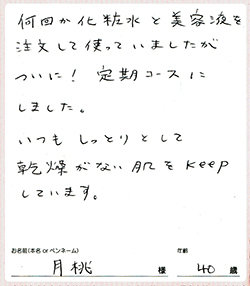 何回か化粧水と美容液を
注文して使っていましたが
ついに! 定期コースに
しました。
いつもしっとりとして
乾燥がない肌をkeep
しています。
お名前(本名orペンネーム) 年齢
月桃 様 40 歳